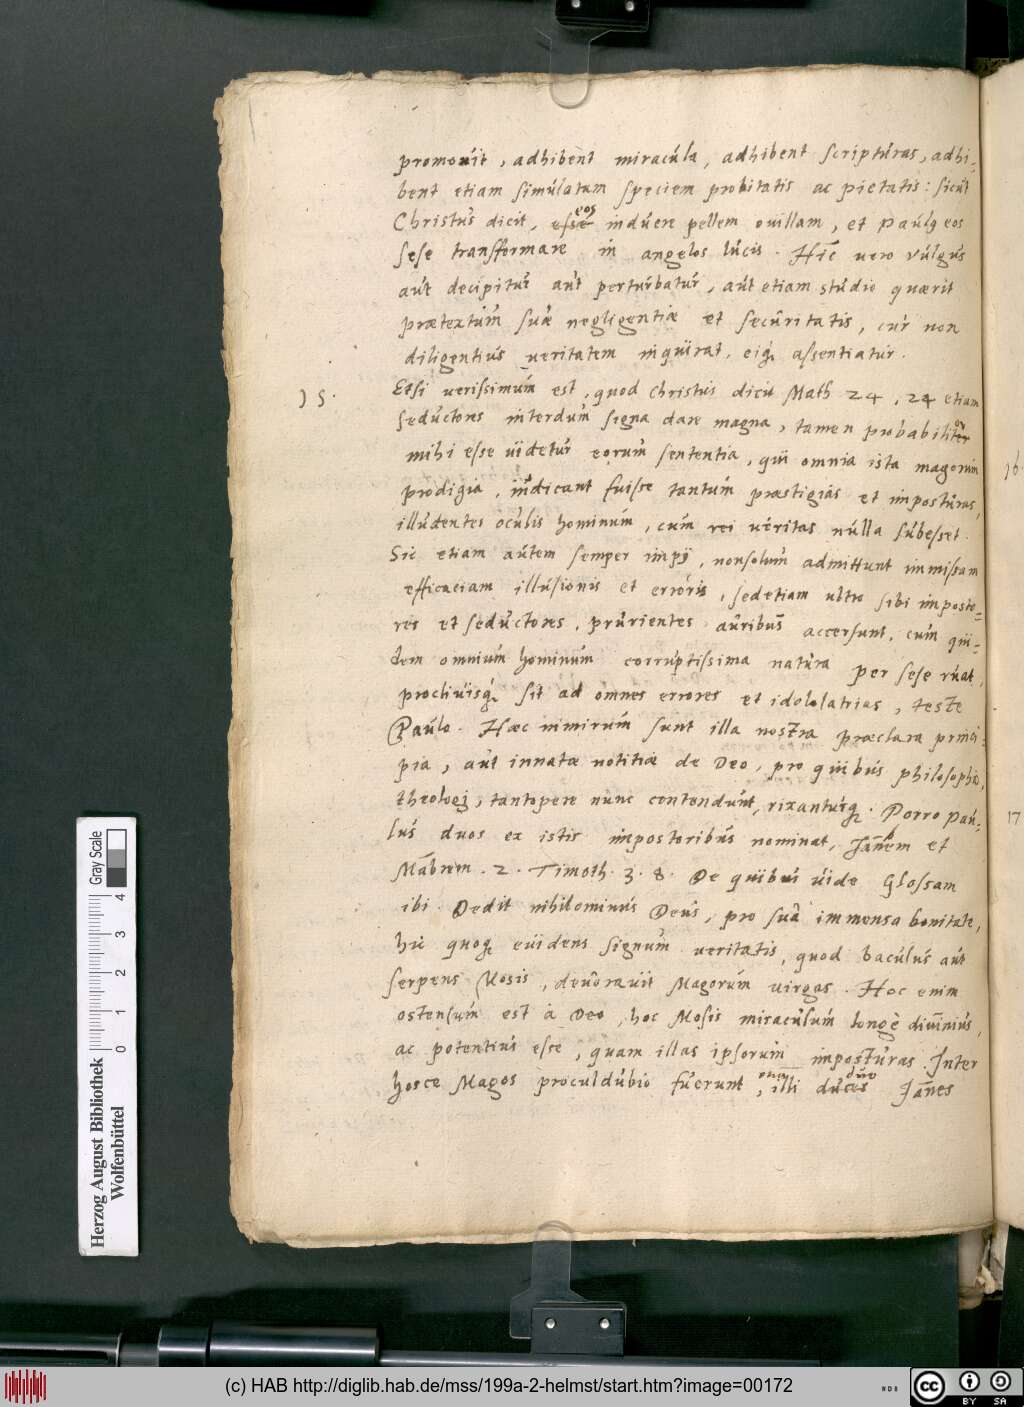 promouit, adhibent miracula, adhibent scripturas, adhi-
bent etiam simulatam speciem probitatis ac pietatis: sicut
Christus dicit, esse eos induere pellem ouillam, et Paulꝰ eos
sese transformare in angelos lucis. Hic vero vulgus
aut decipitur aut perturbatur, aut etiam studio quærit
prætextum suæ negligentiæ et securitatis, cur non
diligentius ueritatem inquirat, eiqꝫ assentiatur.
15. Etsi uerissimum est, quod Christus dicit Math 24, 24 etiam
seductores interdum signa dare magna, tamen probabilior
mihi esse uidetur eorum sententia, qui omnia ista magorum
prodigia, iudicant fuisse tantum præstigias et imposturas,
illudentes oculis hominum, cum rei ueritas nulla subesset.
Sic etiam autem semper impij, non solum admittunt immissam
efficaciam illusionis et erroris, sed etiam ultro sibi imposto-
res et seductores, prurientes auribus accersunt, cum qui-
dem omnium hominum corruptissima natura per sese ruat,
procliuisqꝫ sit ad omnes errores et idololatrias, teste
Paulo. Hæc nimirum sunt illa nostra præclara princi-
pia, aut innatæ notitiæ de Deo, pro quibus philosophi,
theologi, tantopere nunc contendunt, rixanturqꝫ. Porro Pau-
lus duos ex istis impostoribus nominat, Jan̄em et
Mābrem. 2. Timoth. 3. 8. De quibus uide Glossam
ibi. Dedit nihilominus Deus, pro sua immensa bonitate,
hic quoqꝫ euidens signum ueritatis, quod baculus aut
serpens Mosis, deuorauit Magorum uirgas. Hoc enim
ostensum est à Deo, hoc Mosis miraculum longè diuinius,
ac potentius esse, quam illas ipsorum imposturas. Inter
hosce Magos proculdubio fuerunt, illi duces duo Jan̄es
16.
17
Herzog August Bibliothek
Wolfenbüttel
Gray Scale
0 1 2 3 4
(c) HAB http://diglib.hab.de/mss/199a-2-helmst/start.htm?image=00172
WDB
cc BY SA